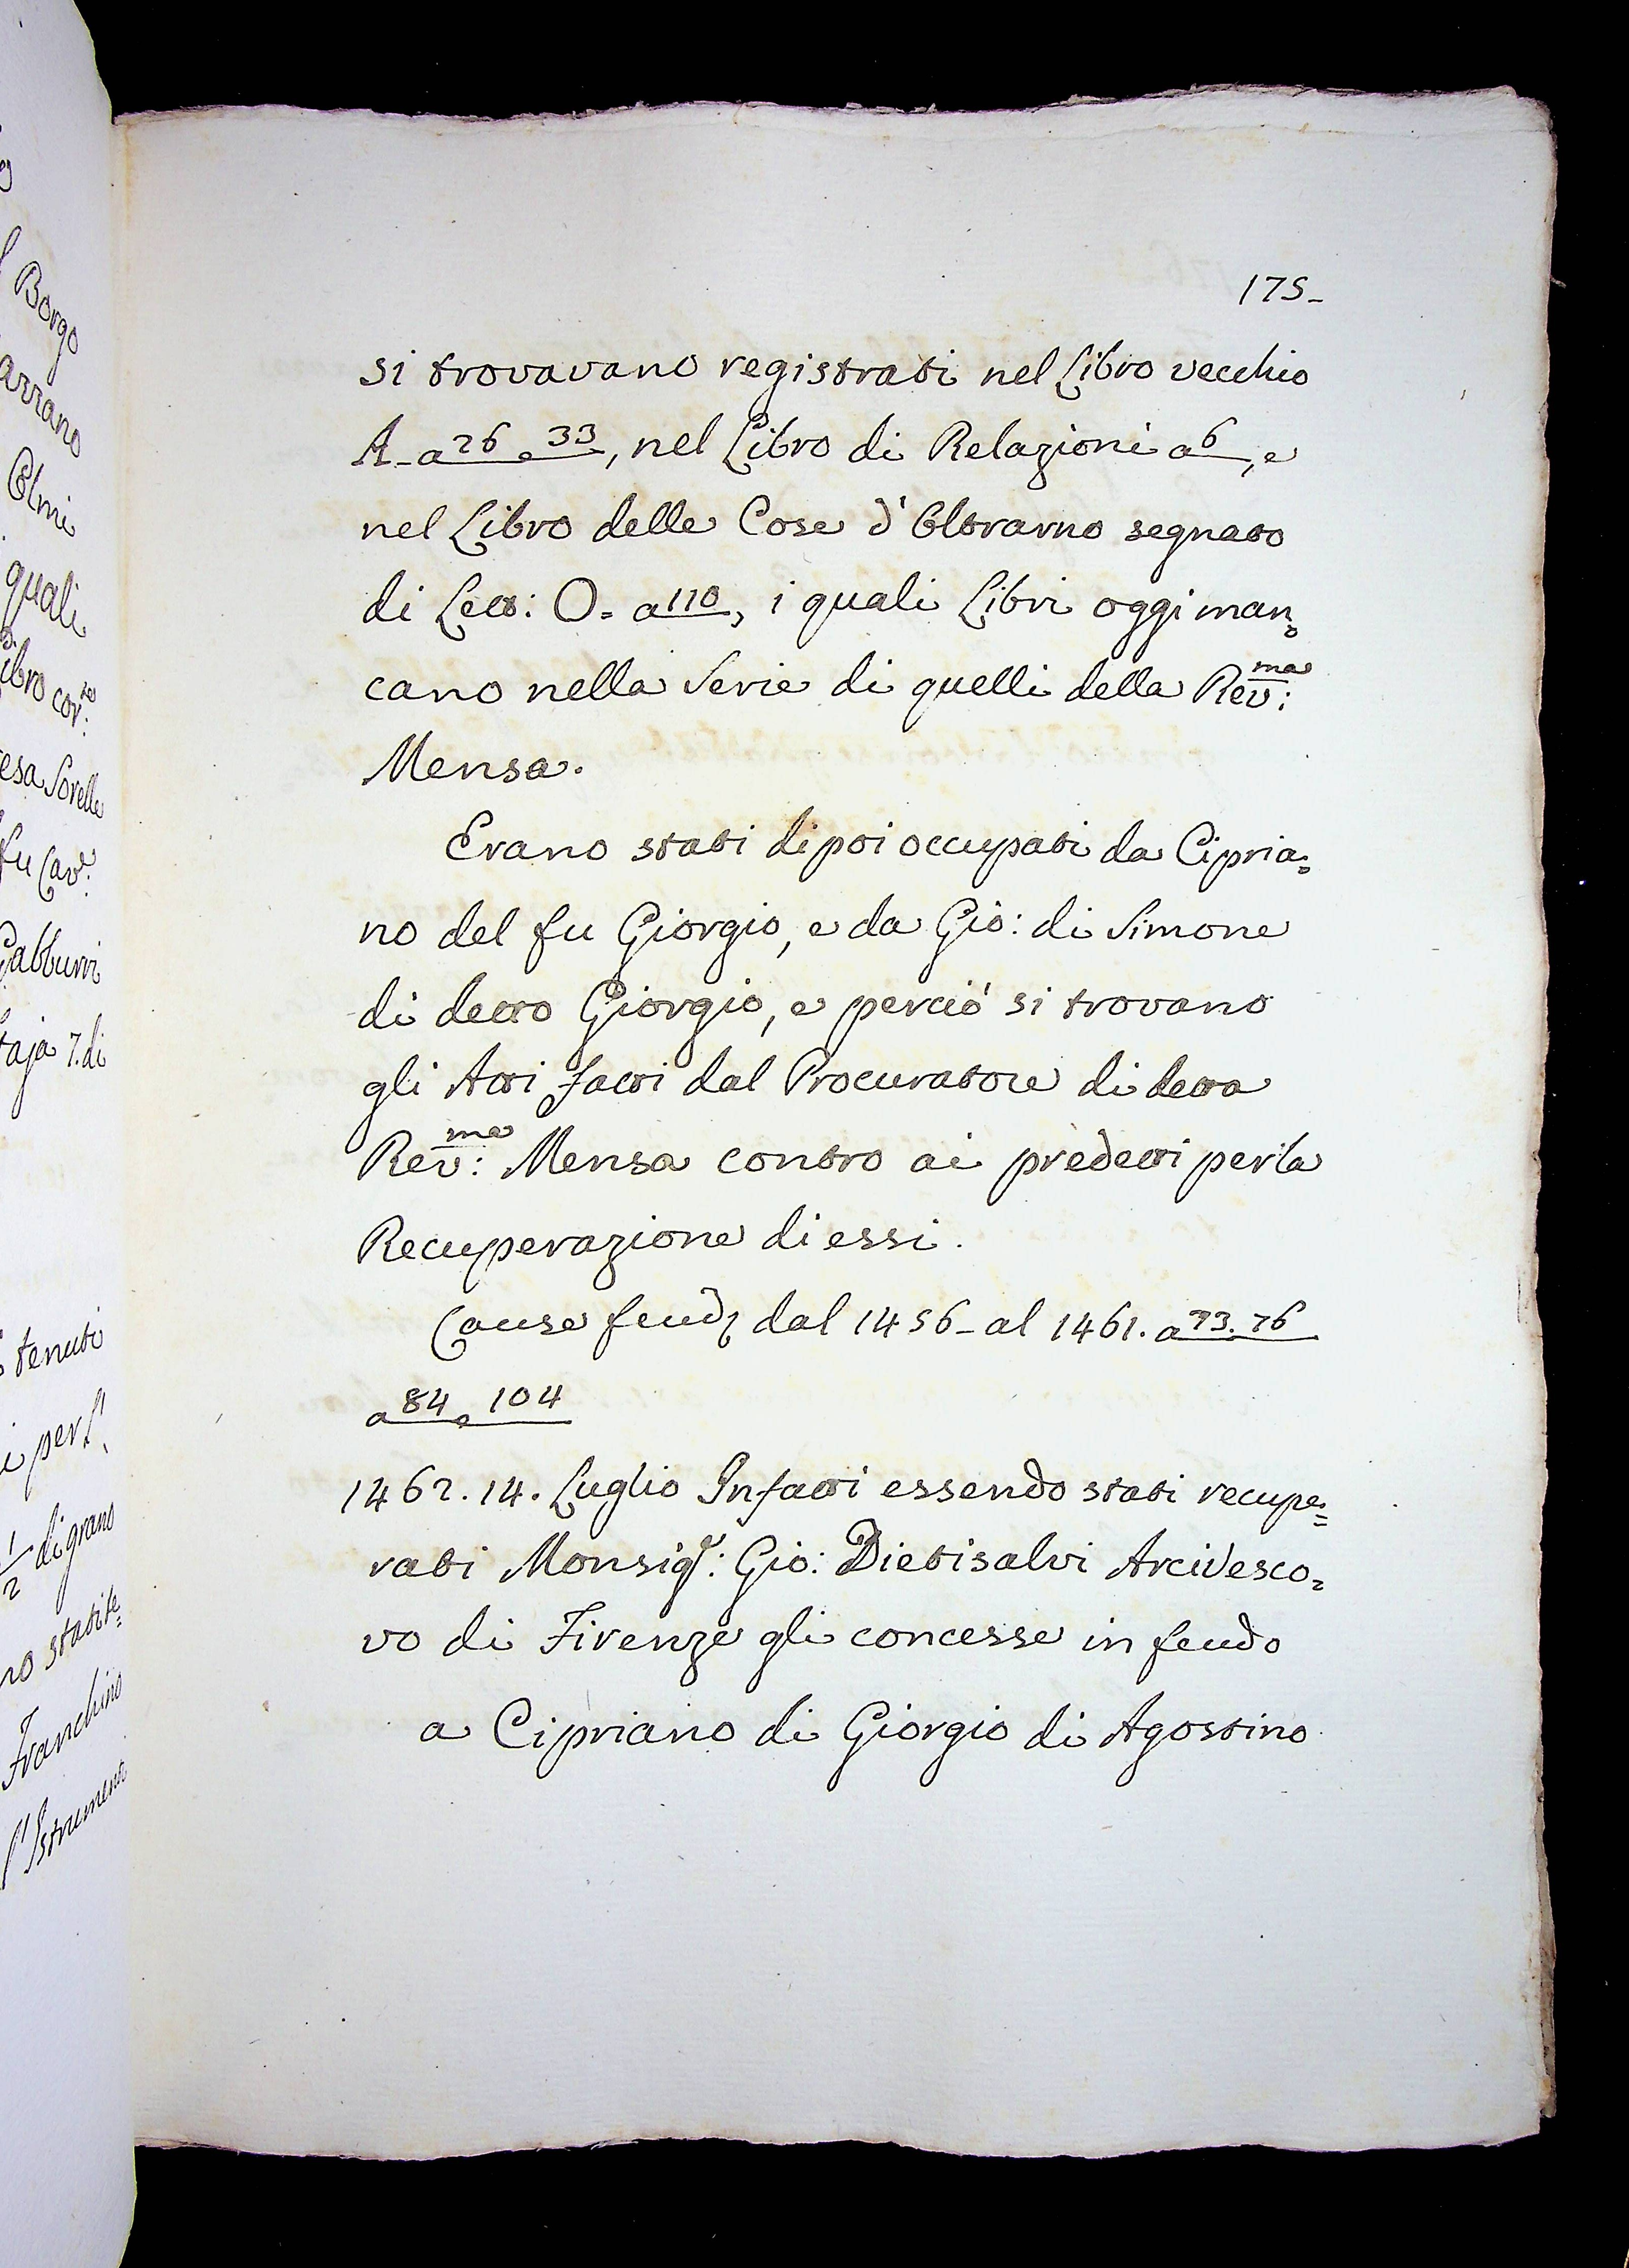 Borgo
arrano
Elmi
quali
ibro cor:te
esa Sorelle
fu Cav:e
Gabburri
taja 7. di
tenuti
i per l'
1/2 di grano
no stabile=
Franchino
l'Istrumento
175-
si trovavano registrati nel Libro vecchio
A- a 26 e 33, nel Libro di Relazioni a 6, e
nel Libro delle Cose d'Oltrarno segnato
di Lett: O= a 110, i quali Libri oggi man=
cano nella Serie di quelli della Rev:ma
Mensa.
Erano stati dipoi occupati da Cipria=
no del fu Giorgio, e da Gio: di Simone
di detto Giorgio, e perciò si trovano
gli Atti fatti dal Procuratore di detta
Rev:ma Mensa contro ai predetti per la
Recuperazione di essi.
Cause feud: dal 1456- al 1461. a 73. 76
a 84 e 104
1462. 14. Luglio Infatti essendo stati recupe=
rati Monsig:r Gio: Dietisalvi Arcivesco=
vo di Firenze gli concesse in feudo
a Cipriano di Giorgio di Agostino